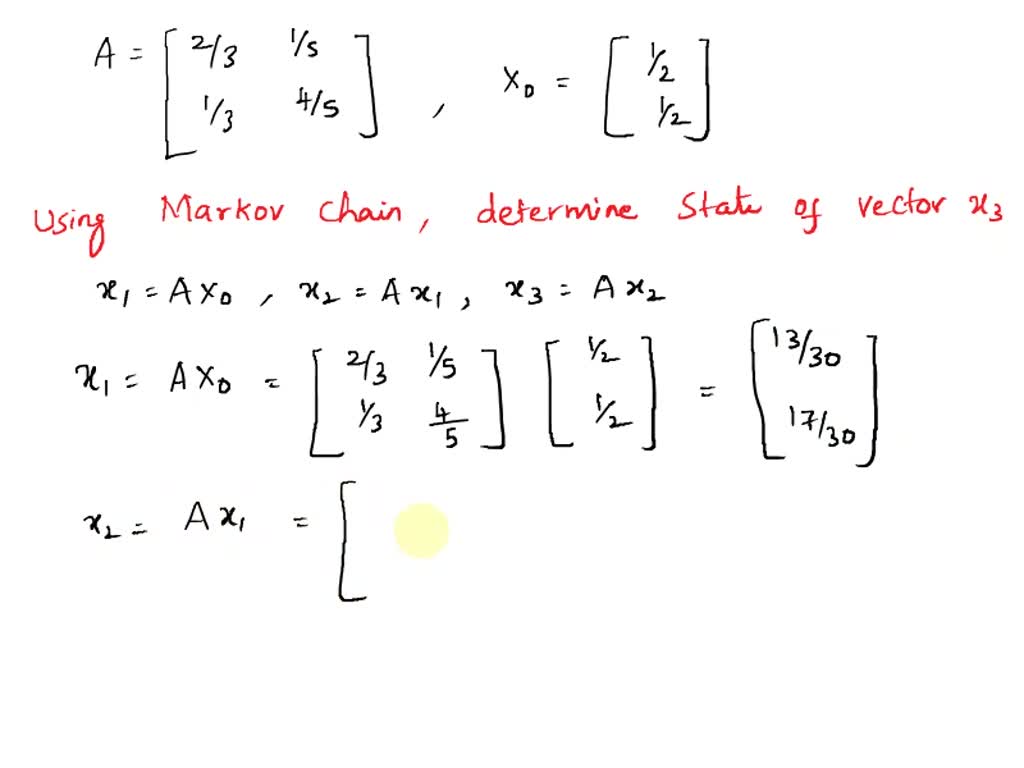 A = [ 2/3 1/5 , x0 = [ 1/2
1/3 4/5 ] 1/2 ]
Using Markov chain, determine state of vector x3
x1 = A x0 , x2 = A x1 , x3 = A x2
x1 = A x0 = [ 2/3 1/5 [ 1/2 = [ 13/30
1/3 4/5 ] 1/2 ] 17/30 ]
x2 = A x1 = [